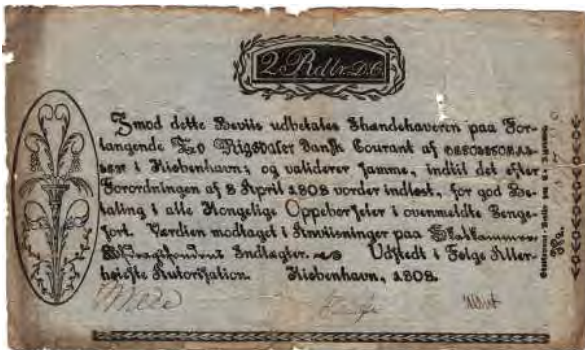 2 Rdlr. D. C.
Imod dette Beviis udbetales Ihændehaveren paa For-
langende To Rigsdaler Dansk Courant af
i Kiøbenhavn; og validerer samme, indtil det efter
Forordningen af 8 April 1808 vorder indløst, for god Be-
taling i alle Kongelige Oppeborseler i ovenmeldte Penge-
sort. Værdien modtaget i Anviisninger paa Skatkammer
Afdragsfondens Indtægter. Udstedt i Følge Aller-
høieste Autorisation. Kiøbenhavn, 1808.